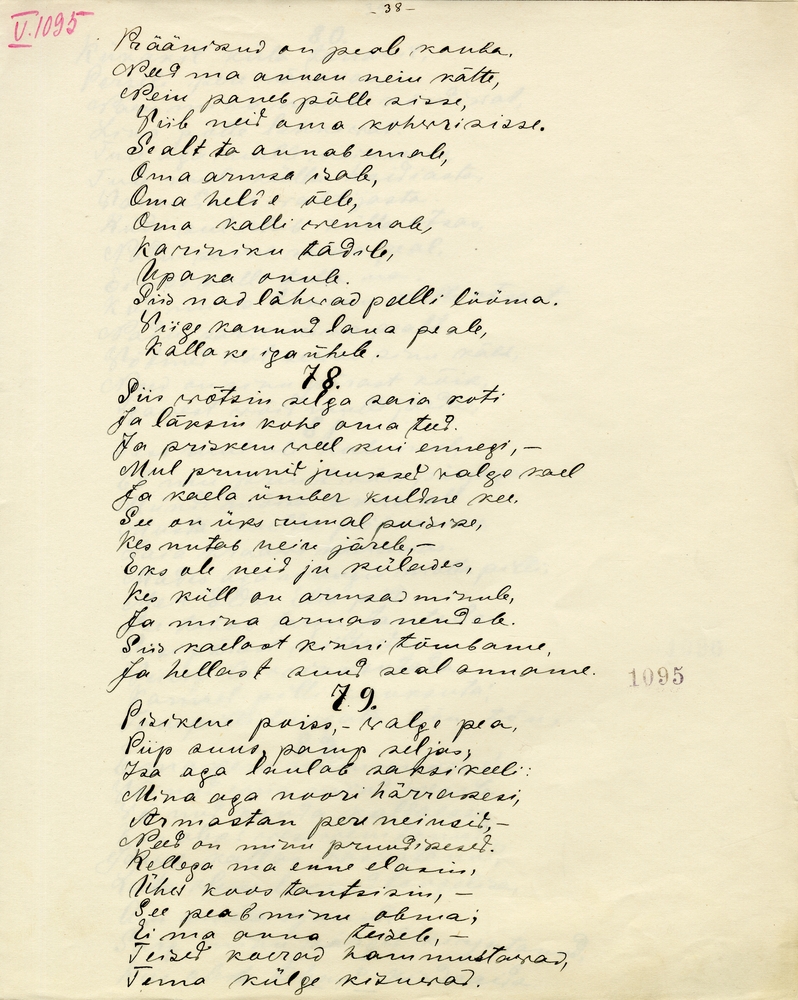 - 38 -
V. 1095
Präänikud on peale kauba.
Need ma annan neiu kätte,
Neiu paneb põlle sisse,
Viib neid oma kohwrisisse.
Sealt ta annab emale,
Oma armsa isale,
Oma helde õele,
Oma kalli wennale,
Kariniku tädile,
Upaka onule.
Siis nad lähwad palli lööma.
Viige kannud laua peale,
Kallake igaühele.
78.
Siis wõtsin selga saia koti
Ja läksin kohe oma teed.
Ja priskem weel kui ennegi, —
Mul pruunid juuksed walge kael
Ja kaela ümber kuldne kee.
See on üks rumal poisike,
Kes nutab neiu järele, —
Eks ole neid ju külades,
Kes küll on armsad minule,
Ja mina armas nendele.
Siis kaelast kinni tõmbame,
Ja hellast suud seal anname.
1095
79.
Pisikene poiss, - walge pea,
Piip suus, pamp seljas,
Isa aga laulab saksi keeli:
Mina aga noori härrakesi,
Armastan pere neiusid, —
Need on minu pruudikesed.
Kellega ma enne elasin,
Ühes koos tantsisin, —
See peab minu olema;
Ei ma anna teisele, —
Teised koerad hammustawad,
Tema külge kisuwad.